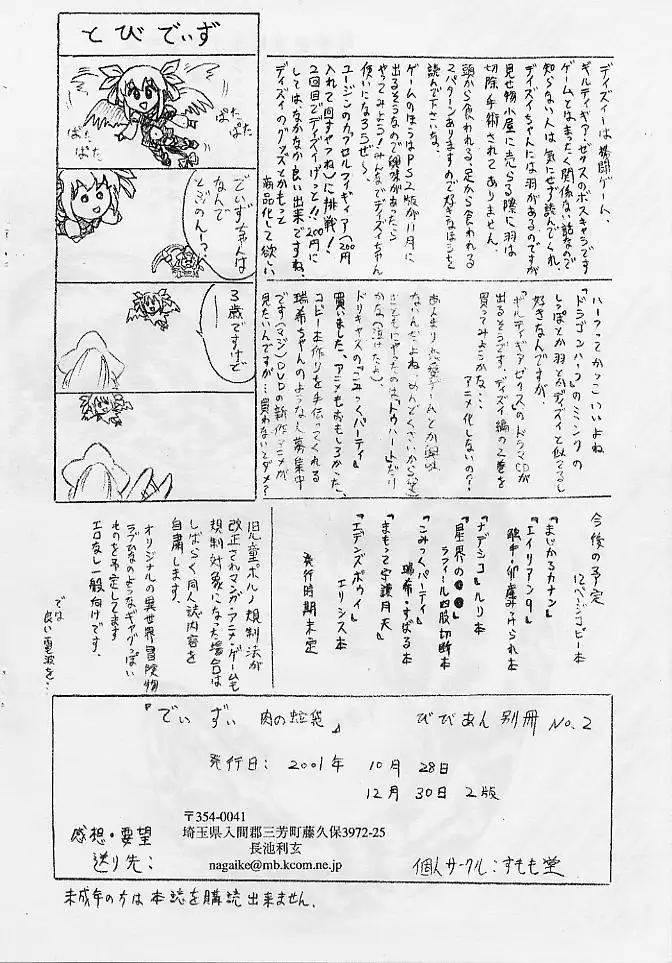 とびでぃず
ぱた
ぱた
ぱた
ぱた
でぃずちゃんは
なんで
とぶのん！？
3歳ですけど
ディズィーは格闘ゲーム、
ギルティギア・ゼクスのボスキャラです
ゲームとはまったく関係ない話なので
知らない人は気にせず読んでくれ。
ディズィちゃんには羽があるのですが
見せ物小屋に売らる際に羽は
切除手術されてありません。
頭から食われる、足から食われる
2パターンありますので好きなほうを
読んで下さいな。
ゲームのほうはPS2版が11月に
出るそうなので興味があったら
やってみよう！みんなでディズィちゃん
使いになろうぜ〜
ユージンのカプセルフィギュア(200円
入れて回すやつね)に挑戦！
2回目でディズィげっと!! 200円に
してはなかなか良い出来ですね。
ディズィのグッズとかもっと
商品化して欲しい。
ハーフってかっこいいよね
『ドラゴンハーフ』のミンクの
しっぽとか羽とかディズィと似てるし
好きなんですが、
『ギルティギアゼクス』のドラマCDが
出るそうです。ディズィ編の2巻を
買ってみようかな…
アニメ化しないの？
ないんだよね、めんどくさいから
かな(泣けたよ)
ドリキャスの『こみっくパーティ』
買いました、アニメもおもしろかった。
コピー本作りを手伝ってくれる
瑞希ちゃんのような人募集中
です(マジ)DVDの新作アニメが
見たいんですが…買わないとダメ？
今後の予定
12ページコピー本
『まじかるカナン』
『エイリアン9』
卵産みつけられ本
『ナデシコ』ルリ本
『星界の●●』
ラフィール四股切断本
『こみっくパーティ』
瑞希・すばる本
『まもって守護月天』
『エデンズボゥイ』
エリシス本
発行時期未定
児童ポルノ規制法が
改正されマンガ・アニメ・ゲームも
規制対象になった場合は
しばらく同人誌内容を
自粛します。
オリジナルの異世界冒険物
ラブひなのようなギャグっぽい
ものを予定してます
エロなし一般向けです。
では
良い電波を…
『でぃずぃ 肉の 袋』 びびあん 別冊 No.2
発行日： 2001年 10月 28日
12月 30日 2版
〒354-0041
埼玉県入間郡三芳町藤久保3972-25
感想・要望
長池利玄
送り先：
nagaike@mb.kcom.ne.jp
個人サークル：すもも堂
未成年の方は本誌を購読出来ません。